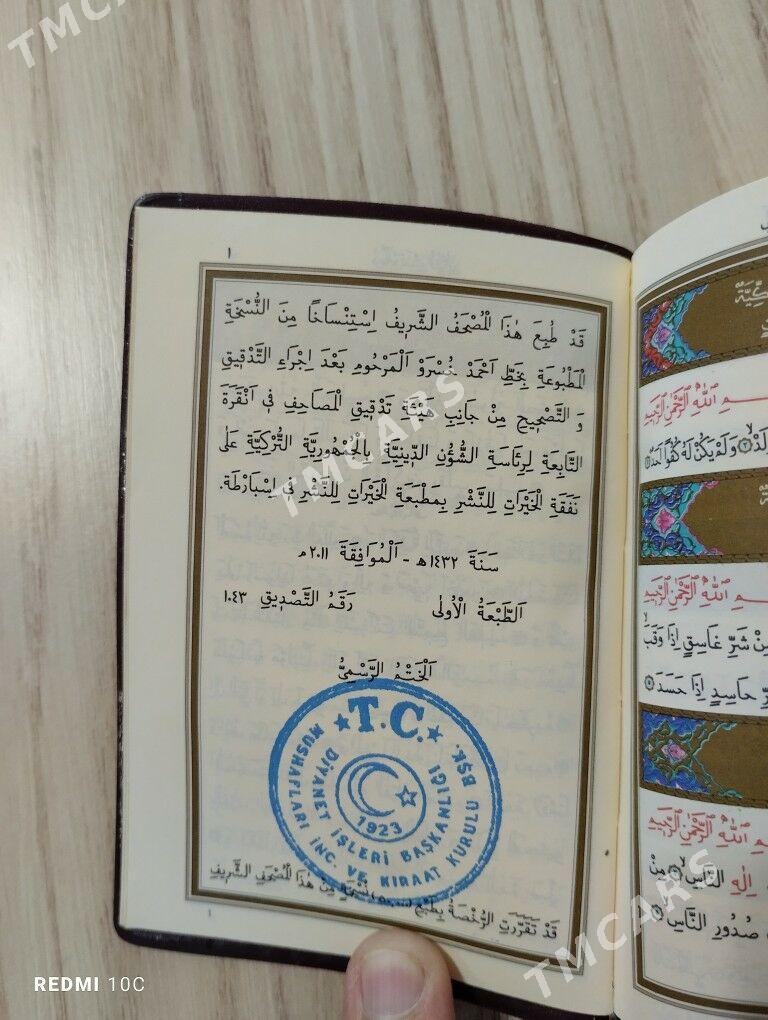 TMCARS
١
قَدْ طُبِعَ هٰذَا الْمُصْحَفُ الشَّرِيفُ اِسْتِنْسَاخًا مِنَ النُّسْخَةِ
الْمَطْبُوعَةِ بِخَطِّ اَحْمَدْ خُسْرَوْ اَلْمَرْحُومِ بَعْدَ اِجْرَاءِ التَّدْقِيقِ
وَ التَّصْحِيحِ مِنْ جَانِبِ هَيْئَةِ تَدْقِيقِ الْمَصَاحِفِ فِى اَنْقَرَةَ
التَّابِعَةِ لِرِئَاسَةِ الشُّؤُنِ الدِّينِيَّةِ بِالْجُمْهُورِيَّةِ التُّرْكِيَّةِ عَلٰى
نَفَقَةِ الْخَيْرَاتِ لِلنَّشْرِ بِمَطْبَعَةِ الْخَيْرَاتِ لِلنَّشْرِ فِى اِسْبَارْطَةَ.
سَنَةَ ١٤٣٢ه - اَلْمُوَافِقَةَ ٢٠١١م
اَلطَّبْعَةُ الْاُولٰى رَقَمُ التَّصْدِيقِ ١٠٤٣
اَلْخَتْمُ الرَّسْمِىُّ
★T.C.★
MUSHAFLARI İNC. VE KIRAAT KURULU BŞK.
DİYANET İŞLERİ BAŞKANLIĞI
1923
قَدْ تَقَرَّرَتِ الرُّخْصَةُ بِطَبْعِ نُسْخَةٍ مِنْ هٰذَا الْمُصْحَفِ الشَّرِيفِ
١
ـمِ اللّٰهِ الرَّحْمٰنِ الرَّحِيمِ
وَلَمْ يَكُنْ لَهُ كُفُوًا اَحَدٌ
ـمِ اللّٰهِ الرَّحْمٰنِ الرَّحِيمِ
شَرِّ غَاسِقٍ اِذَا وَقَبَ
حَاسِدٍ اِذَا حَسَدَ
ـمِ اللّٰهِ الرَّحْمٰنِ الرَّحِيمِ
اِلٰهِ النَّاسِ مِنْ
صُدُورِ النَّاسِ
TMCARS
TMCARS
REDMI 10C